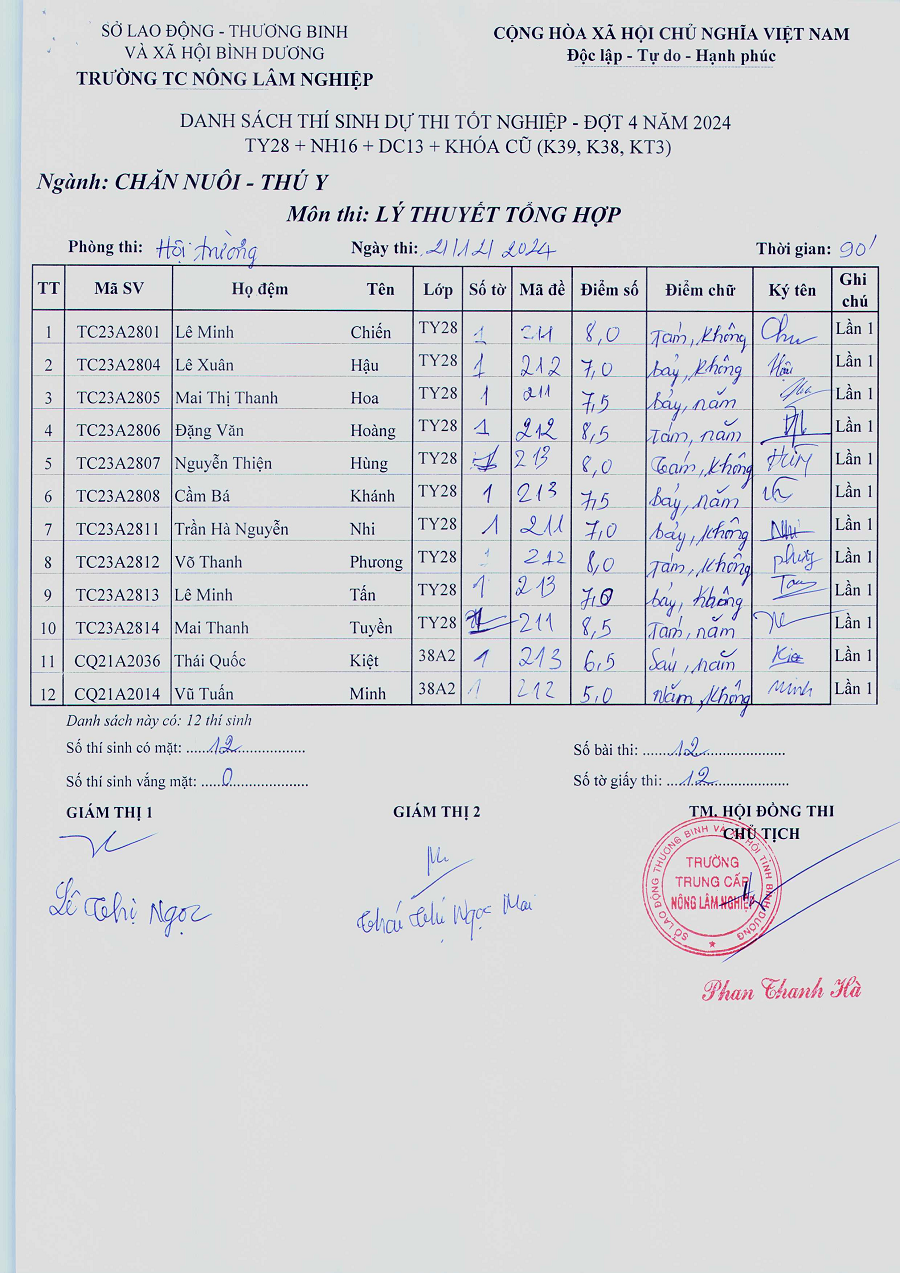 SỞ LAO ĐỘNG - THƯƠNG BINH
VÀ XÃ HỘI BÌNH DƯƠNG
TRƯỜNG TC NÔNG LÂM NGHIỆP
CỘNG HÒA XÃ HỘI CHỦ NGHĨA VIỆT NAM
Độc lập - Tự do - Hạnh phúc
DANH SÁCH THÍ SINH DỰ THI TỐT NGHIỆP - ĐỢT 4 NĂM 2024
TY28 + NH16 + DC13 + KHÓA CŨ (K39, K38, KT3)
Ngành: CHĂN NUÔI - THÚ Y
Môn thi: LÝ THUYẾT TỔNG HỢP
Phòng thi: Hội trường Ngày thi: 21/12/2024 Thời gian: 90'
TT Mã SV Họ đệm Tên Lớp Số tờ Mã đề Điểm số Điểm chữ Ký tên Ghi chú
1 TC23A2801 Lê Minh Chiến TY28 1 211 8,0 Tám, không Lần 1
2 TC23A2804 Lê Xuân Hậu TY28 1 212 7,0 bảy, không Hậu Lần 1
3 TC23A2805 Mai Thị Thanh Hoa TY28 1 211 7,5 bảy, năm Hoa Lần 1
4 TC23A2806 Đặng Văn Hoàng TY28 1 212 8,5 Tám, năm Lần 1
5 TC23A2807 Nguyễn Thiện Hùng TY28 1 213 8,0 Tám, không Hùng Lần 1
6 TC23A2808 Cầm Bá Khánh TY28 1 213 7,5 bảy, năm Lần 1
7 TC23A2811 Trần Hà Nguyễn Nhi TY28 1 211 7,0 bảy, không Nhi Lần 1
8 TC23A2812 Võ Thanh Phương TY28 1 212 8,0 Tám, không phương Lần 1
9 TC23A2813 Lê Minh Tấn TY28 1 213 7,0 bảy, không Lần 1
10 TC23A2814 Mai Thanh Tuyền TY28 1 211 8,5 Tám, năm Lần 1
11 CQ21A2036 Thái Quốc Kiệt 38A2 1 213 6,5 Sáu, năm Kiệt Lần 1
12 CQ21A2014 Vũ Tuấn Minh 38A2 1 212 5,0 năm, không Minh Lần 1
Danh sách này có: 12 thí sinh
Số thí sinh có mặt: 12
Số bài thi: 12
Số thí sinh vắng mặt: 0
Số tờ giấy thi: 12
GIÁM THỊ 1 GIÁM THỊ 2 TM. HỘI ĐỒNG THI
CHỦ TỊCH
SỞ LAO ĐỘNG THƯƠNG BINH VÀ XÃ HỘI TỈNH BÌNH DƯƠNG
TRƯỜNG
TRUNG CẤP
NÔNG LÂM NGHIỆP
Lê Thị Ngọc
Thái Thị Ngọc Mai
Phan Thanh Hà